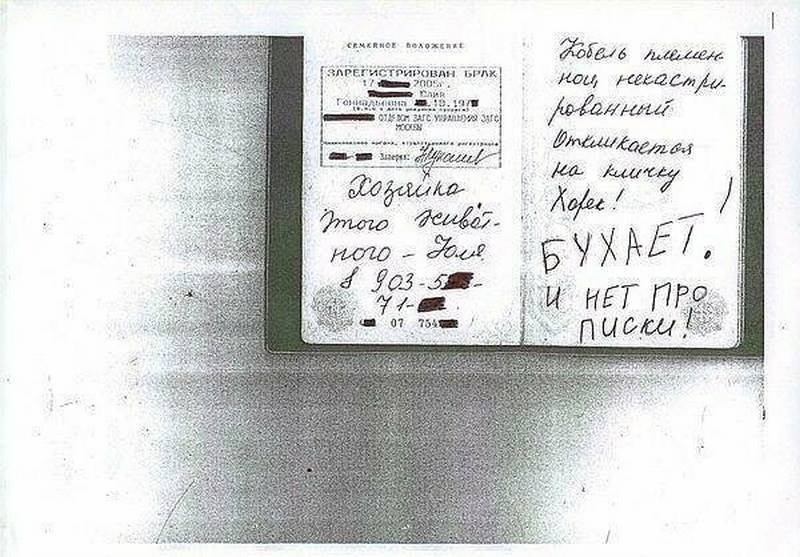 СЕМЕЙНОЕ ПОЛОЖЕНИЕ
ЗАРЕГИСТРИРОВАН БРАК
17 2005г.
Юлия
Геннадьевна .10.197
ОТДЕЛОМ ЗАГС УПРАВЛЕНИЯ ЗАГС
МОСКВЫ
Хозяйка
этого живот-
ного - Юля
8 903-5
71-
07 754
Кобель племен-
ной некастри-
рованный
Откликается
на кличку
Хорек!
БУХАЕТ.
И НЕТ ПРО
ПИСКИ!